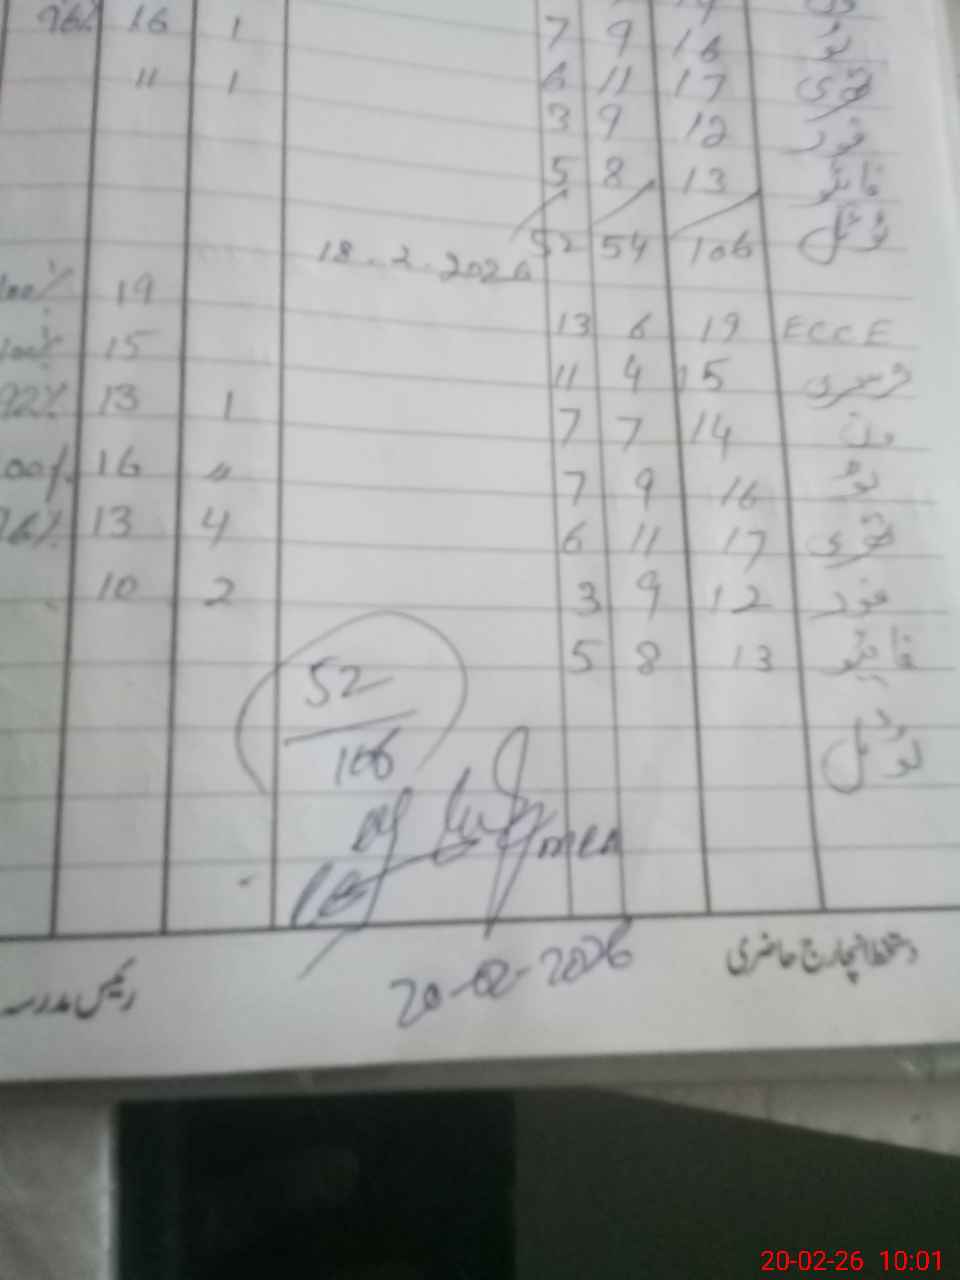 96% 16 1 7 9 16 ٹو
11 1 6 11 17 تھری
3 9 12 فور
5 8 13 فائیو
52 54 106 ٹوٹل
18.2.2026
100% 19 13 6 19 ECCE
100% 15 11 4 15 نرسری
92% 13 1 7 7 14 ون
100% 16 " 7 9 16 ٹو
76% 13 4 6 11 17 تھری
10 2 3 9 12 فور
5 8 13 فائیو
52
106
ٹوٹل
دستخط انچارج حاضری
20-02-2026
رئیس مدرسہ
20-02-26 10:01